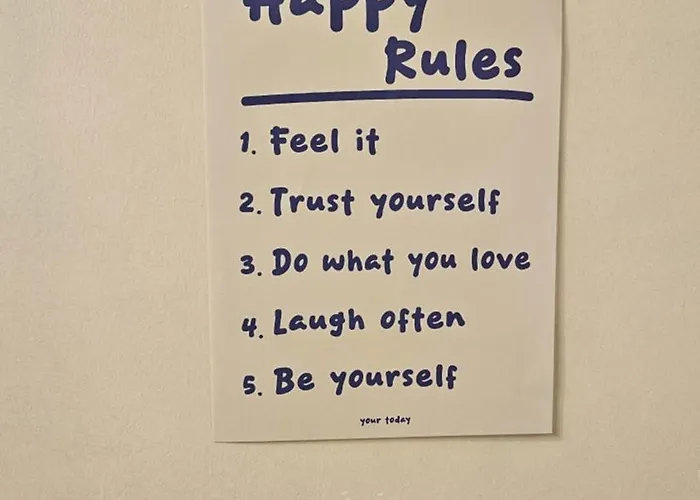 Happy
Rules
1. Feel it
2. Trust yourself
3. Do what you love
4. Laugh often
5. Be yourself
your today